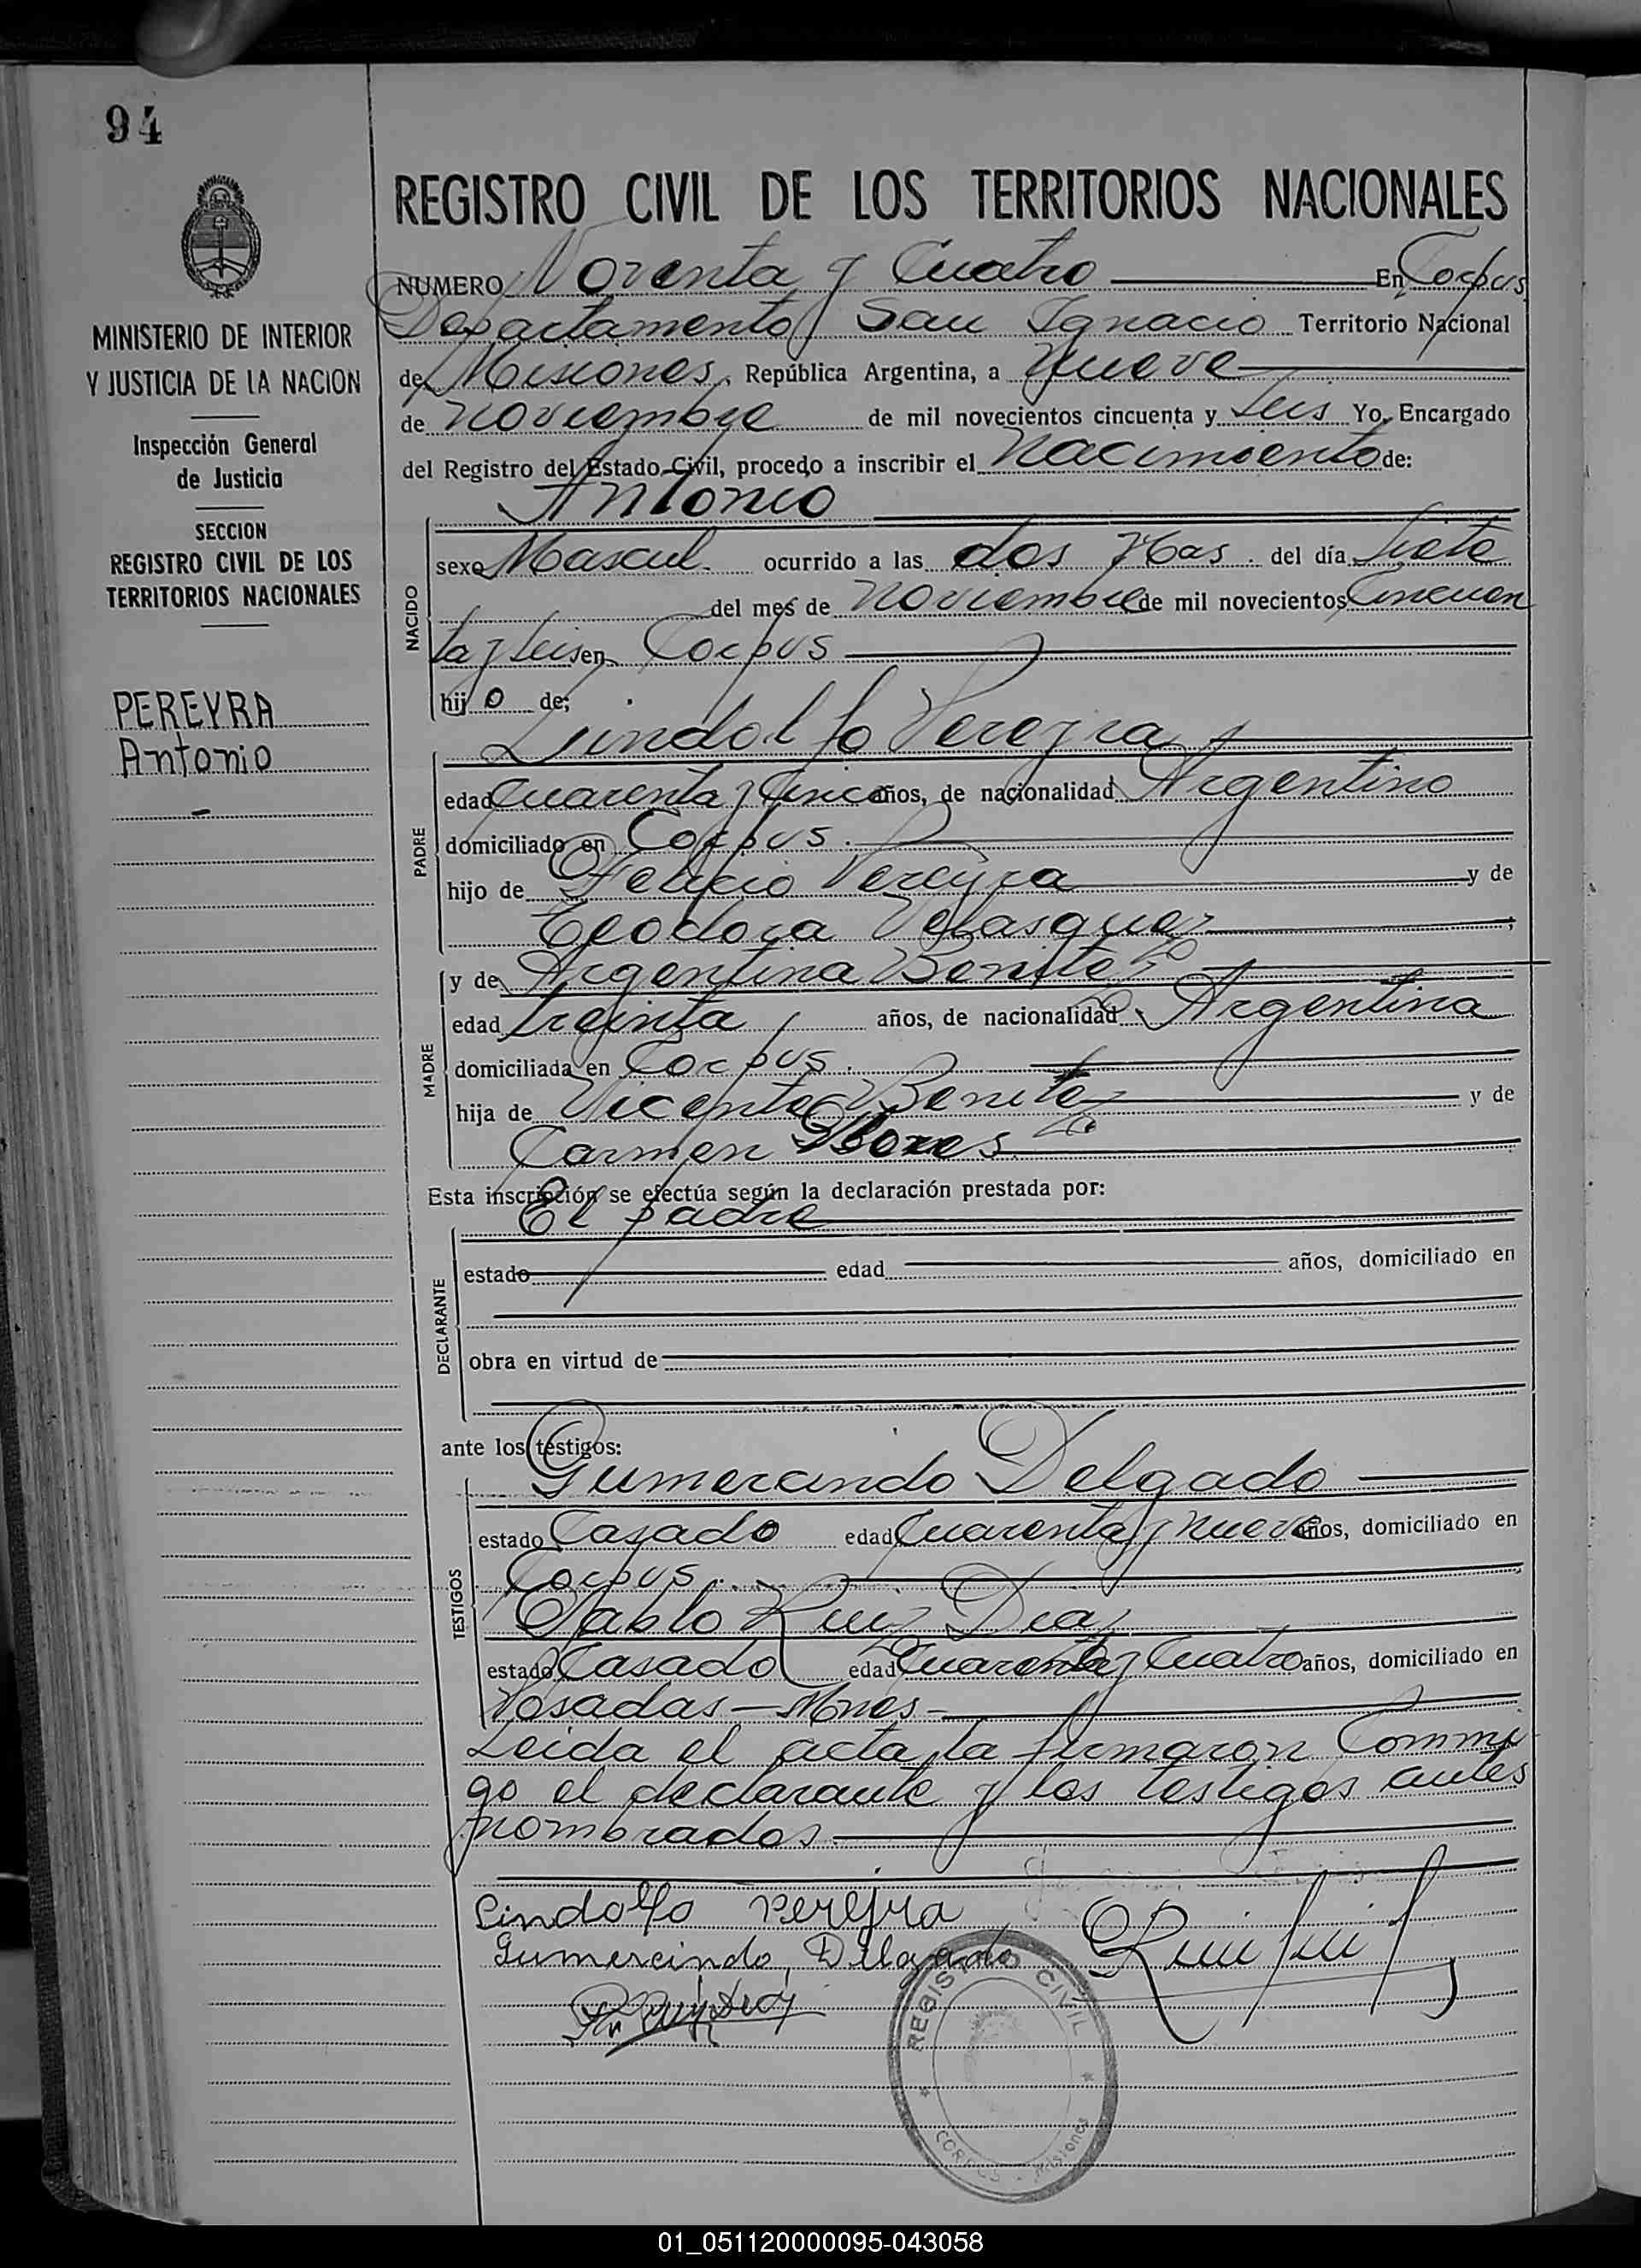 94
REGISTRO CIVIL DE LOS TERRITORIOS NACIONALES
MINISTERIO DE INTERIOR
Y JUSTICIA DE LA NACION
Inspección General
de Justicia
SECCION
REGISTRO CIVIL DE LOS
TERRITORIOS NACIONALES
PEREYRA
Antonio
NUMERO Noventa y Cuatro En Corpus
Departamento San Ignacio Territorio Nacional
de Misiones, República Argentina, a Nueve
de noviembre de mil novecientos cincuenta y seis Yo, Encargado
del Registro del Estado Civil, procedo a inscribir el Nacimiento de:
Antonio
NACIDO
sexo Mascul. ocurrido a las dos Has. del día siete
del mes de Noviembre de mil novecientos Cincuen
ta y seis en Corpus
hijo de;
Lindolfo Pereyra
PADRE
edad Cuarenta y Cinco años, de nacionalidad Argentino
domiciliado en Corpus.
hijo de Felicio Pereyra y de
Teodora Velasquez ;
MADRE
y de Argentina Benitez
edad treinta años, de nacionalidad Argentina
domiciliada en Corpus.
hija de Vicente Benitez y de
Carmen Flores
Esta inscripción se efectúa según la declaración prestada por:
El padre
DECLARANTE
estado edad años, domiciliado en
obra en virtud de
ante los testigos:
TESTIGOS
Gumercindo Delgado
estado Casado edad Cuarenta y nueve años, domiciliado en
Corpus.
Pablo Ruiz Diaz
estado Casado edad Cuarenta y Cuatro años, domiciliado en
Posadas - Mnes -
Leida el acta, la firmaron Conmi
go el declarante y los testigos antes
nombrados
Lindolfo Pereyra
Gumercindo Delgado
REGISTRO CIVIL
CORPUS - Misiones
01_051120000095-043058